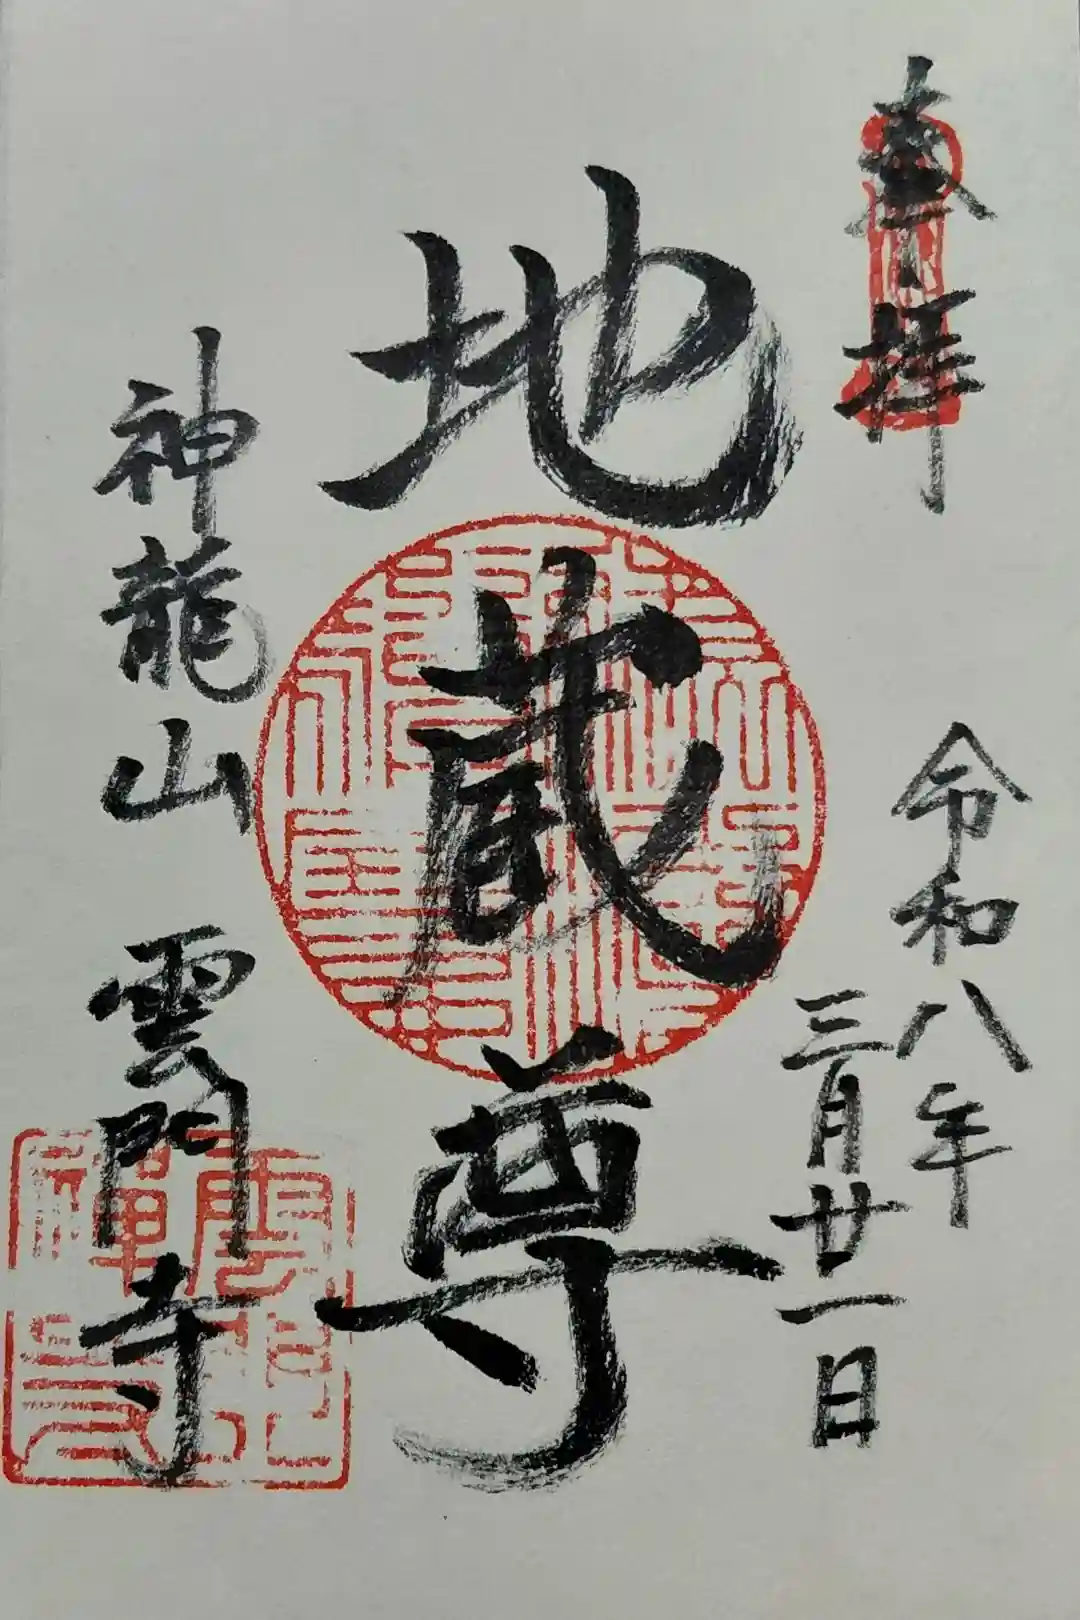 奉拝
令和八年
三月廿一日
地蔵尊
神龍山 雲門寺